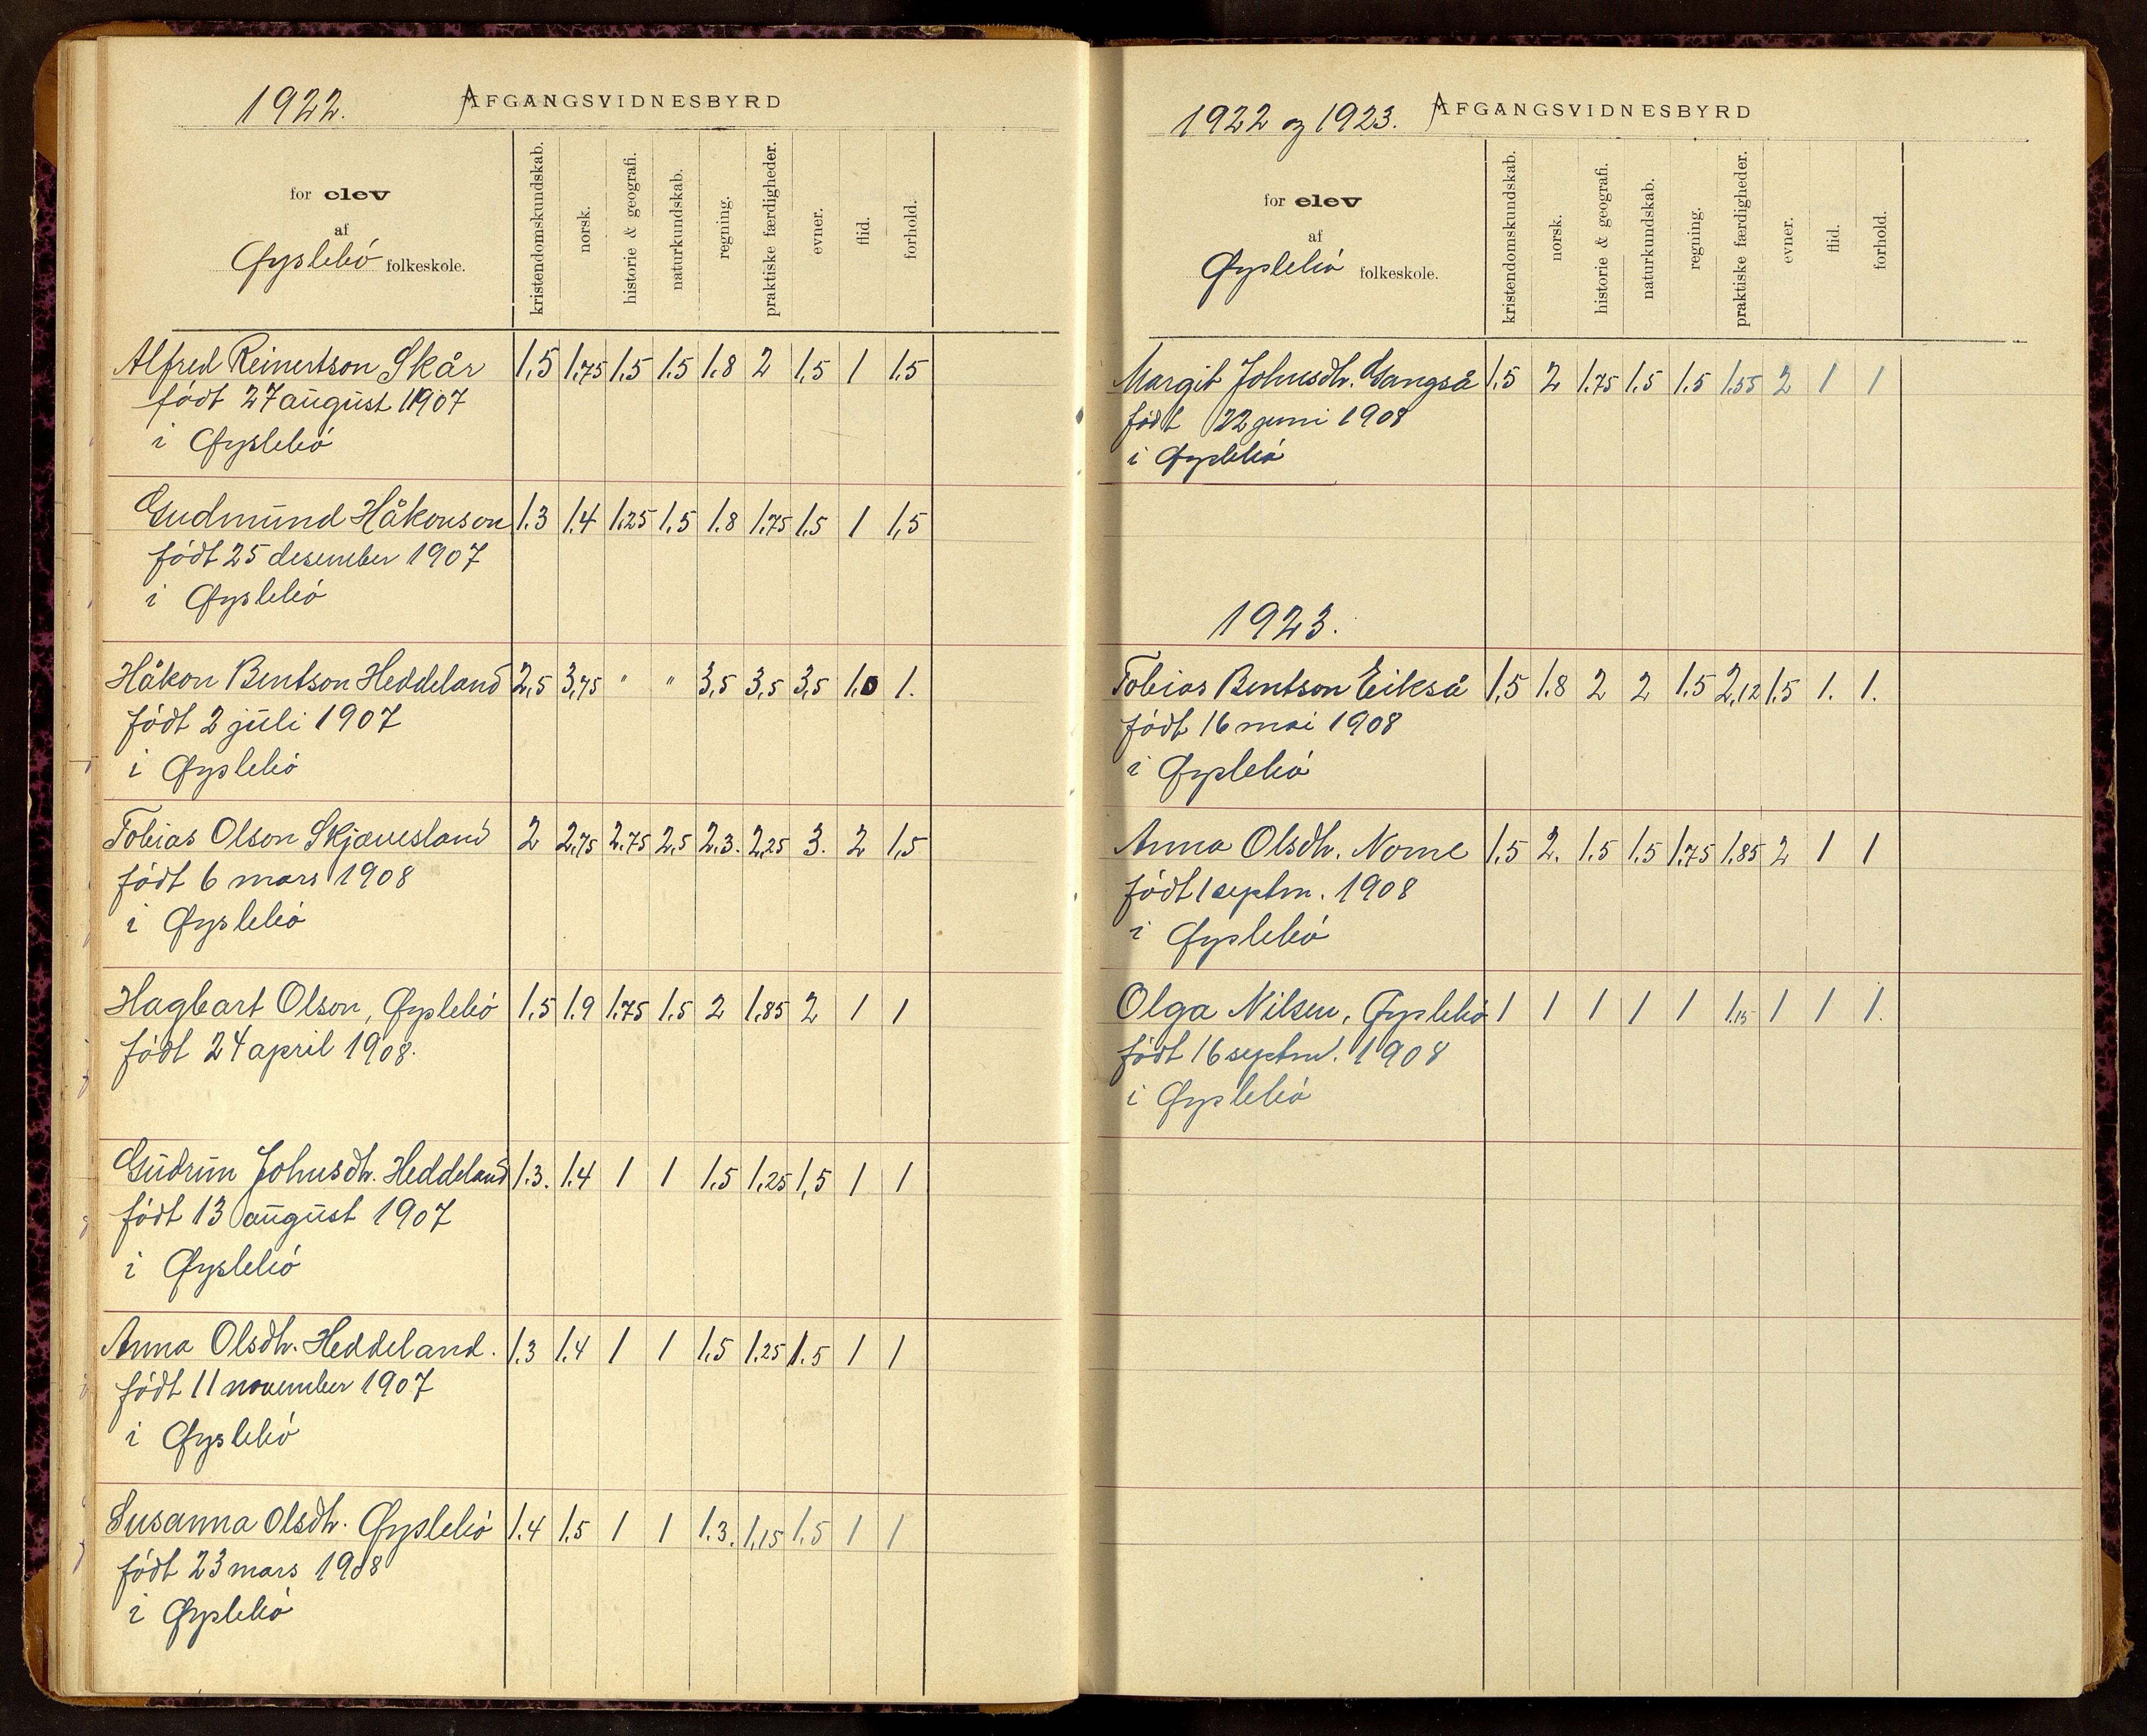 1922. AFGANGSVIDNESBYRD
for elev
af
Øyslebö folkeskole.
kristendomskundskab. norsk. historie & geografi. naturkundskab. regning. praktiske færdigheder. evner. flid. forhold.
Alfred Reinertson Skår 1,5 1,75 1.5 1.5 1.8 2 1,5 1 1.5
födt 27 august 1907
i Øyslebö
Gudmund Håkonson 1.3 1.4 1.25 1.5 1.8 1.75 1.5 1 1,5
födt 25 desember 1907
i Øyslebö
Håkon Bentson Heddeland 2,5 3,75 " " 3,5 3,5 3,5 1.0 1.
födt 2 juli 1907
i Øyslebö
Tobias Olson Skjævesland 2 2,75 2.75 2,5 2.3. 2,25 3. 2 1,5
födt 6 mars 1908
i Øyslebö
Hagbart Olson, Øyslebö 1.5 1.9 1.75 1.5 2 1.85 2 1 1
födt 24 april 1908.
Gudrun Johnsdtr. Heddeland 1.3. 1.4 1 1 1.5 1.25 1,5 1 1
födt 13 august 1907
i Øyslebö
Anna Olsdtr. Heddeland. 1.3 1.4 1 1 1.5 1.25 1.5 1 1
födt 11 november 1907
i Øyslebö
Susanna Olsdtr. Øyslebö 1.4 1.5 1 1 1.3. 1,15 1.5 1 1
födt 23 mars 1908
i Øyslebö
1922 og 1923. AFGANGSVIDNESBYRD
for elev
af
Øyslebö folkeskole.
kristendomskundskab. norsk. historie & geografi. naturkundskab. regning. praktiske færdigheder. evner. flid. forhold.
Margit Johnsdtr. Gangså 1.5 2 1.75 1.5 1.5 1.55 2 1 1
födt 22 juni 1908
i Øyslebö
1923.
Tobias Bentson Eikså 1,5 1.8 2 2 1.5 2,12 1.5 1. 1.
födt 16 mai 1908
i Øyslebö
Anna Olsdtr. Nome 1.5 2. 1.5 1.5 1.75 1.85 2 1 1
födt 1 septm. 1908
i Øyslebö
Olga Nilsen, Øyslebö 1 1 1 1 1 1.15 1 1 1.
födt 16 septm. 1908
i Øyslebö